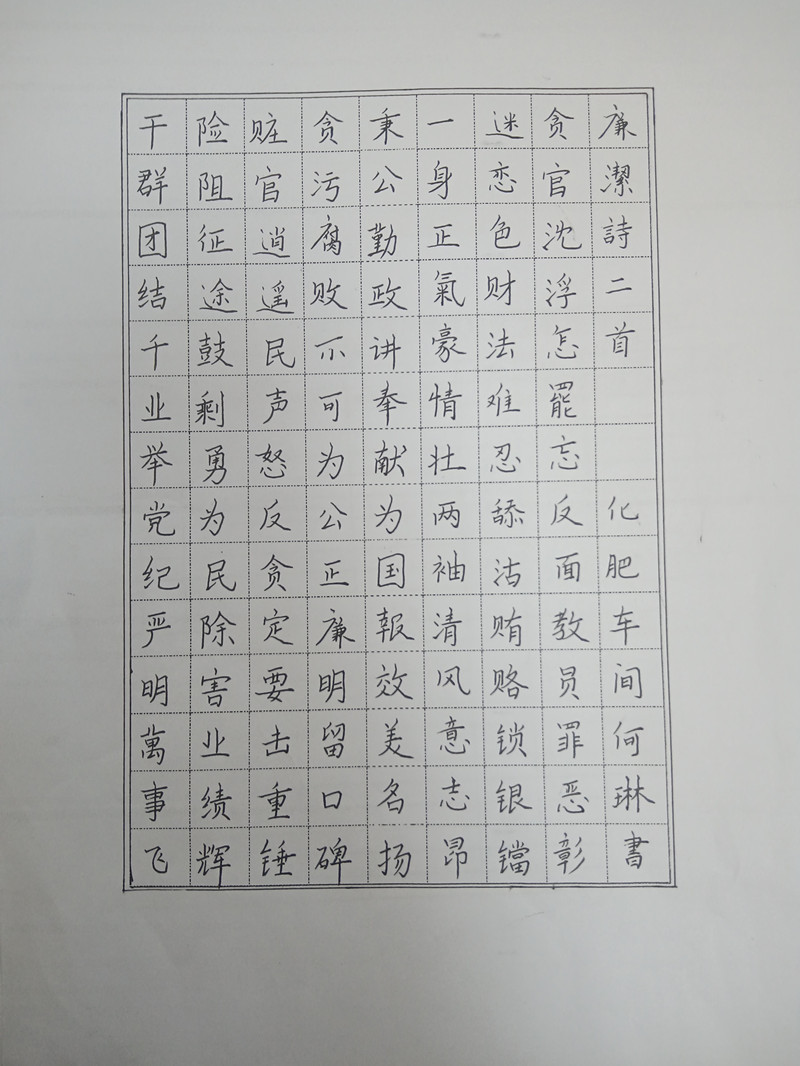 廉潔詩二首 化肥车间何琳書
贪官沈浮怎罷忘反面教员罪恶彰
迷恋色财法难忍舔沾贿赂锁银铛
一身正氣豪情壮两袖清风意志昂
秉公勤政讲奉献为国報效美名扬
贪污腐败不可为公正廉明留口碑
赃官逍遥民声怒反贪定要击重锤
险阻征途鼓剩勇为民除害业绩辉
干群团结千业举党纪严明萬事飞